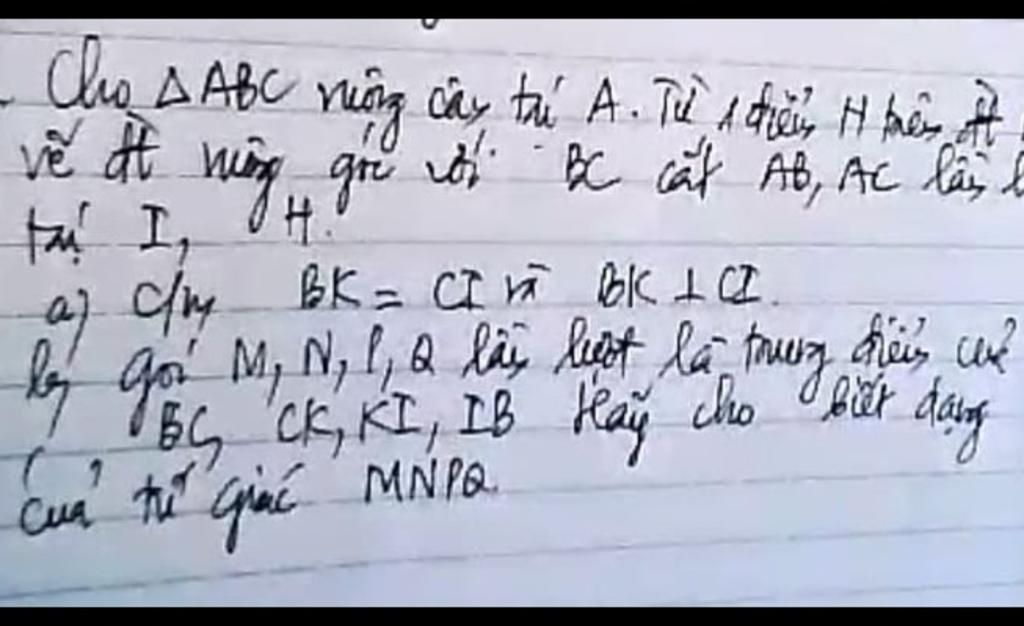 Cho △ABC vuông cân tại A. Từ 1 điểm H trên đt
vẽ đt vuông góc với BC cắt AB, AC lần l
tại I, H.
a) C/m BK = CI và BK ⊥ CI.
b) gọi M, N, P, Q lần lượt là trung điểm củả
BC, CK, KI, IB Hãy cho biết dạng
của tứ giác MNPQ.